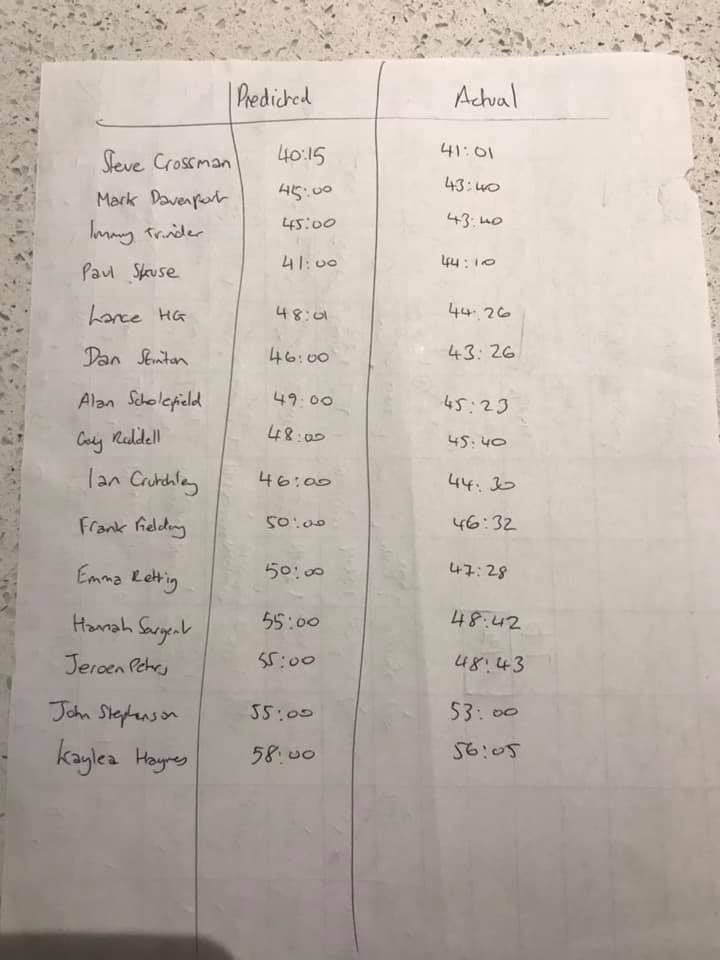 Predicted Actual
Steve Crossman 40:15 41:01
Mark Davenport 45:00 43:40
Immy Trinder 45:00 43:40
Paul 41:00 44:10
Lance HG 48:01 44:26
Dan Stinton 46:00 43:26
Alan Scholefield 49:00 45:23
Guy Riddell 48:00 45:40
Ian Crutchley 46:00 44:30
Frank Fielding 50:00 46:32
Emma Rettig 50:00 47:28
Hannah Sargent 55:00 48:42
Jeroen Peters 55:00 48:43
John Stephenson 55:00 53:00
Kaylea Haynes 58:00 56:05